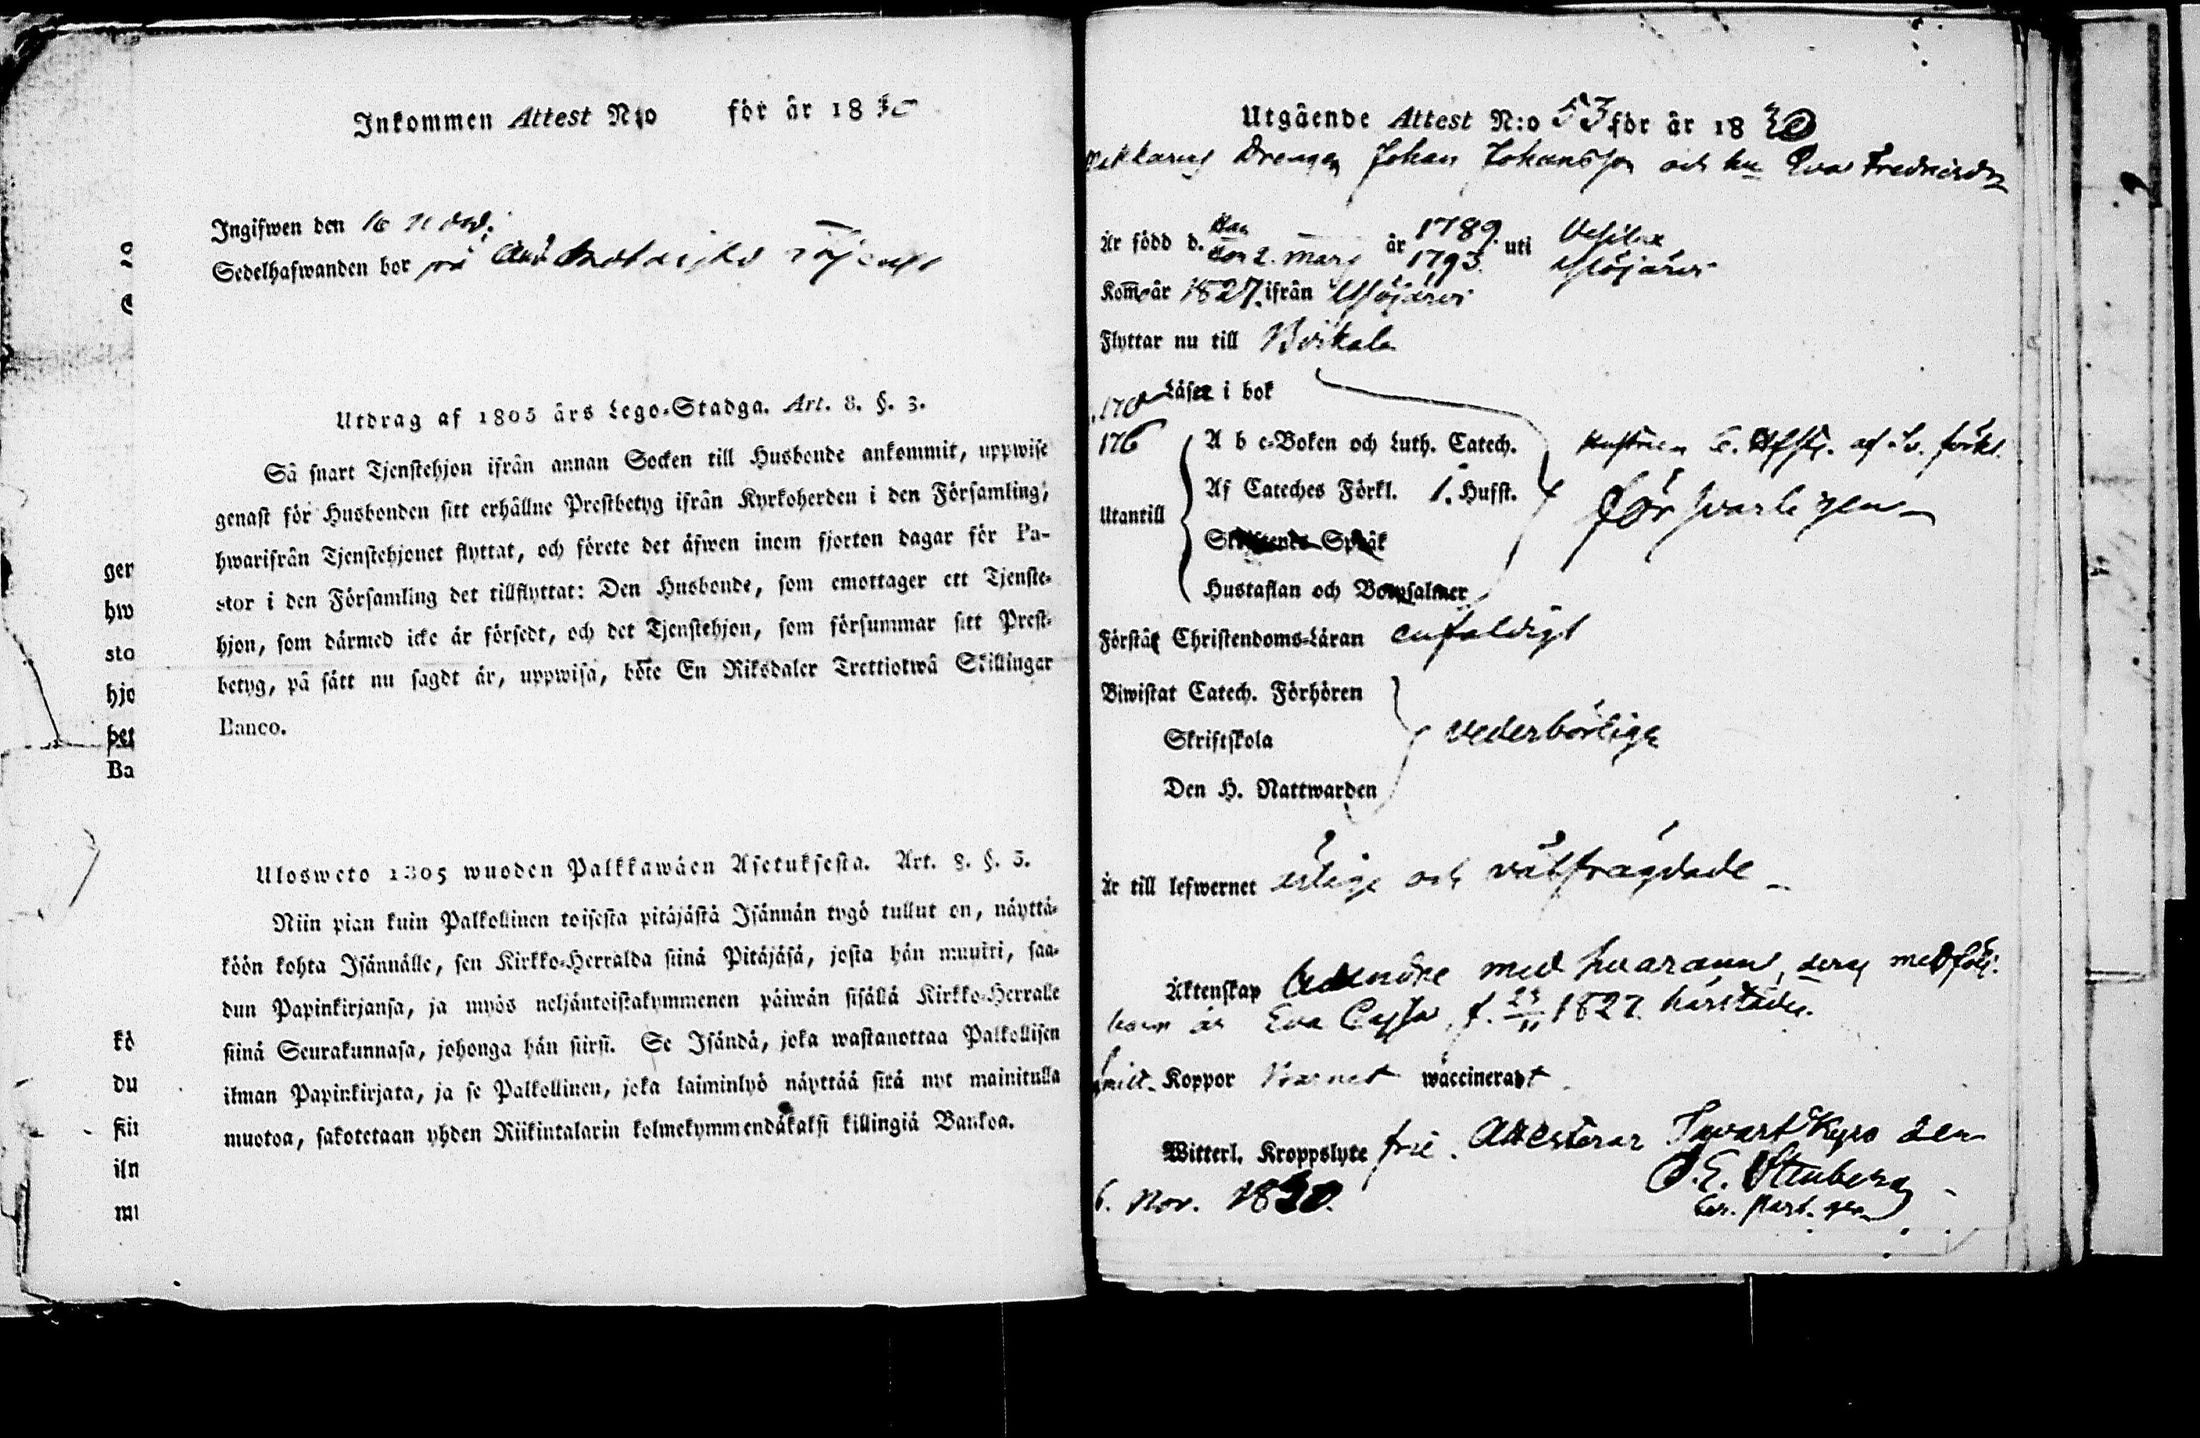 Inkommen Attest N:o för år 1830
Ingifwen den 16
Sedelhafwanden bor på
Utdrag af 1805 års Lego-Stadga. Art. 8. §. 3.
Så snart Tjenstehjon ifrån annan Socken till Husbonde ankommit, uppwise
genast för Husbonden sitt erhållne Prestbetyg ifrån Kyrkoherden i den Församling,
hwarifrån Tjenstehjonet flyttat, och förete det åfwen inom fjorton dagar för Pa-
stor i den Församling det tillflyttat: Den Husbonde, som emottager ett Tjenste-
hjon, som dårmed icke år försedt, och det Tjenstehjon, som försummar sitt Prest-
betyg, på sått nu sagdt år, uppwisa, böte En Riksdaler Trettiotwå Skillingar
Banco.
Ulosweto 1805 wuoden Palkkawåen Asetuksesta. Art. 8. §. 3.
Niin pian kuin Palkollinen toisesta pitåjåstå Isånnån tygö tullut on, nåyttå-
köön kohta Isånnålle, sen Kirkko-Herralda siinå Pitåjåså, josta hån muutti, saa-
dun Papinkirjansa, ja myös neljåntoistakymmenen påiwån sisållå Kirkko-Herralle
siinå Seurakunnasa, johonga hån siirsi. Se Isåndå, joka wastanottaa Palkollisen
ilman Papinkirjata, ja se Palkollinen, joka laiminlyö nåyttåå sitå nyt mainitulla
muotoa, sakotetaan yhden Riikintalarin kolmekymmendåkaksi killingiå Bankoa.
ger
hw
sto
hjo
bet
Ba
kö
du
sii
iln
mu
Utgående Attest N:o 53 för år 1830
Drengen Johan Johansson och hu Eva Fredricsdr
Är född d. Han hon 2. Mars år 1789. 1793. uti Vesilax Ylöjärvi
Kom år 1827. ifrån Ylöjärvi
Flyttar nu till Birkala
Låser i bok
176
A b c-Boken och Luth. Catech. Hustrun af Sv. förkl.
Af Cateches Förkl. 1. Hufst. försvarligen
Utantill
Skriftenes Språk
Hustaflan och Botpsalmer
Förstår Christendoms-Låran enfaldigt
Biwistat Catech. Förhören
Skriftskola vederbörligen
Den H. Nattwarden
Är till lefwernet ärlige och välfrägdade
Äktenskap med hvarann, deras medfölj.
barn är Eva Cajsa, f. 23/11 1827. härstädes.
Koppor Barnet waccineradt.
Witterl. Kroppslyte frie. Attesterar Tavastkyro den
6. Nov. 1830. O. E. Stenberg